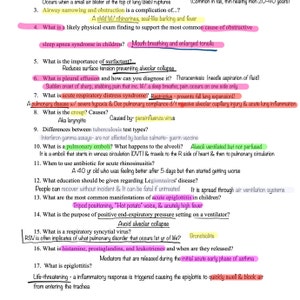 Occurs when a small air blister at the top of lung blast ruptures (Common in tall, thin healthy men 20-40 years)
3. Airway narrowing and obstruction is a complication of...?
A child w/ rhinovirus, and fever
4. What is a likely physical exam finding to support the most common cause of obstructive
sleep apnea syndrome in children? Mouth breathing and enlarged tonsils
5. What is the importance of surfactant?
Reduces surface tension preventing alveolar collapse
6. What is pleural effusion and how can you diagnose it? Thoracentesis (needle aspiration of fluid)
Sudden onset of sharp, stabbing pain that inc. W/ a deep breath; pain occurs on one side only
7. What is acute respiratory distress syndrome? - prevents full lung expansion!
A pulmonary disease w/ severe hypoxia & Dec pulmonary compliance d/t massive alveolar capillary injury & acute lung inflammation
8. What is the croup? Causes? Caused by parainfluenza virus
Aka laryngitis
9. Differences between tuberculosis test types?
Interferon gamma assays- are not affected by bacillus calmette-guerin vaccine
10. What is a pulmonary emboli? What happens to the alveoli? Alveoli ventilated but not perfused
It is a emboli that starts in various circulation (DVT) & travels to the R side of heart & then to pulmonary circulation
11. When to use antibiotic for acute rhinosinusitis?
A 40 yr old who was feeling better after 5 days but then started getting worse
12. What education should be given regarding Legionnaires' disease?
People can recover without incident & It can be fatal if untreated It is spread through air ventilation systems
13. What are the most common manifestations of acute epiglottitis in children?
Tripod positioning, "Hot potato" voice, & acutely high fever
14. What is the purpose of positive end-expiratory pressure setting on a ventilator?
Avoid alveolar collapse
15. What is a respiratory syncytial virus? Bronchiolitis
RSV is often implicates of what pulmonary disorder that occurs 1st yr of life?
16. What is histamine, prostaglandins, and leukotrienes and when are they released?
Mediators that are released during the initial acute early phase of asthma
17. What is epiglottitis?
Life-threatening - a inflammatory response is triggered causing the epiglottis to quickly swell & block air
from entering the trachea